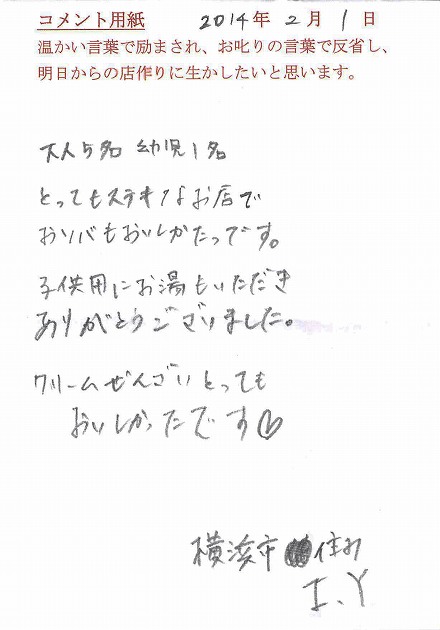 コメント用紙 2014年 2月 1日
温かい言葉で励まされ、お叱りの言葉で反省し、
明日からの店作りに生かしたいと思います。
大人5名 幼児1名
とってもステキなお店で
おソバもおいしかたっです。
子供用にお湯もいただき
ありがとうございました。
クリームぜんざいとっても
おいしかったです♡
横浜市 住み
I、Y